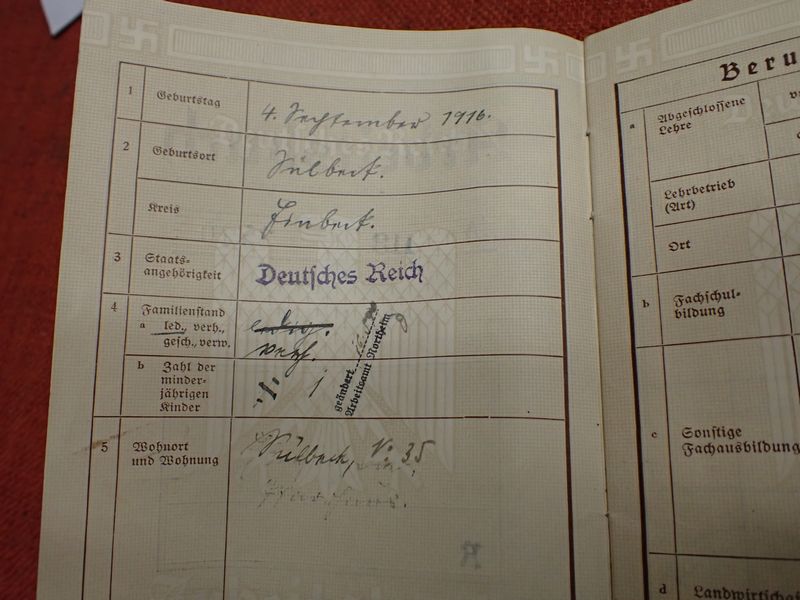 1 Geburtstag 4. September 1916.
2 Geburtsort Sülbeck.
Kreis Einbeck.
3 Staats-
angehörigkeit
Deutsches Reich
4 Familienstand
a led., verh.,
gesch., verw.
ledig.
verh.
b Zahl der
minder-
jährigen
Kinder
1
geändert
Arbeitsamt Northeim
5 Wohnort
und Wohnung
Sülbeck, No 35
Beru
a Abgeschlossene
Lehre
Lehrbetrieb
(Art)
Ort
b Fachschul-
bildung
c Sonstige
Fachausbildung
d Landwirtscha